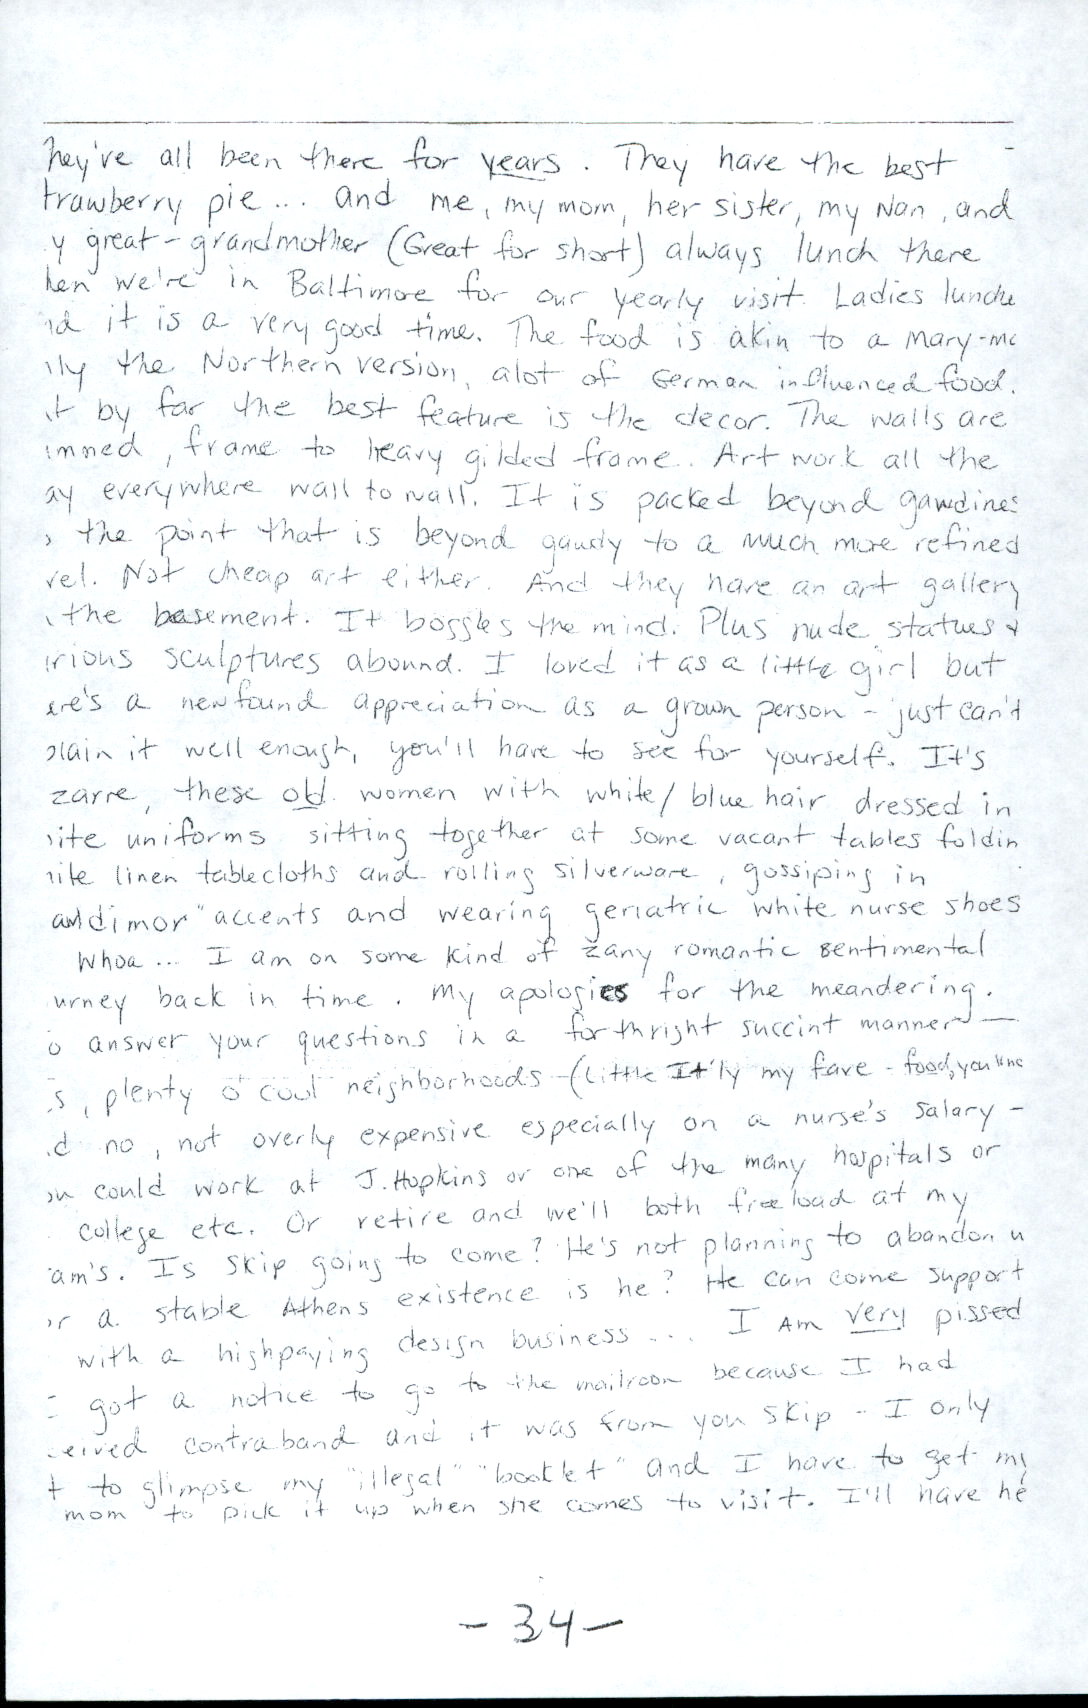 hey've all been there for years. They have the best
trawberry pie... and me, my mom, her sister, my Nan, and
y great-grandmother (Great for short) always lunch there
hen we're in Baltimore for our yearly visit. Ladies lunche
nd it is a very good time. The food is akin to a Mary-mc
lly the Northern version, alot of German influenced food.
ut by far the best feature is the decor. The walls are
mmed, frame to heavy gilded frame. Art work all the
ay everywhere wall to wall. It is packed beyond gawdines
o the point that is beyond gaudy to a much more refined
vel. Not cheap art either. And they have an art gallery
the basement. It boggles the mind. Plus nude statues &
arious sculptures abound. I loved it as a little girl but
ere's a newfound appreciation as a grown person - just can't
plain it well enough, you'll have to see for yourself. It's
zarre, these old women with white/blue hair dressed in
ite uniforms sitting together at some vacant tables foldin
ite linen tablecloths and rolling silverware, gossiping in
awldimor" accents and wearing geriatric white nurse shoes
Whoa... I am on some kind of zany romantic sentimental
urney back in time. My apologies for the meandering.
o answer your questions in a forthright succint manner —
s, plenty o' cool neighborhoods - (Little It'ly my fave - food, you kno
d no, not overly expensive especially on a nurse's salary -
ou could work at J. Hopkins or one of the many hospitals or
college etc. Or retire and we'll both freeload at my
am's. Is Skip going to come? He's not planning to abandon u
or a stable Athens existence is he? He can come support
with a highpaying design business... I Am very pissed
I got a notice to go to the mailroom because I had
ceived contraband and it was from you Skip - I only
t to glimpse my "illegal" "booklet" and I have to get my
mom to pick it up when she comes to visit. I'll have he
-34-